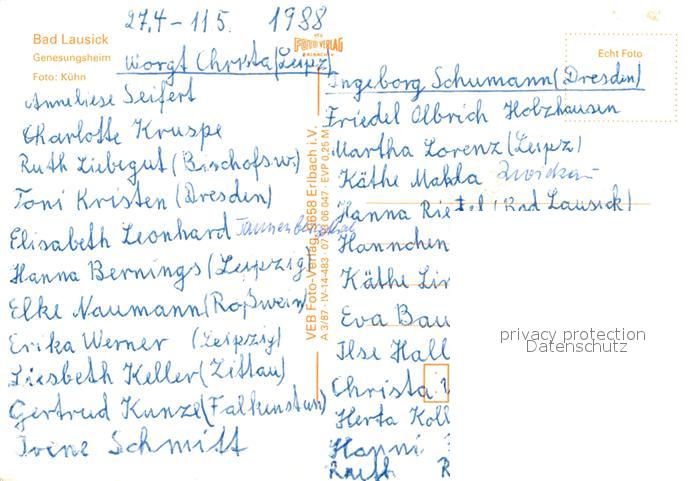 27.4 - 11 5. 1988
Bad Lausick
Genesungsheim
Foto: Kühn
FOTO VERLAG
ERLBACH
Echt Foto
Worgt Christa (Leipz)
Anneliese Seifert
Charlotte Kruspe
Ruth Liebegut (Bischofsw.)
Toni Kristen (Dresden)
Elisabeth Leonhard
Hanna Bernings (Leipzig)
Elke Naumann (Roßwein)
Erika Werner (Leipzig)
Liesbeth Keller (Zittau)
Gertrud Kunze (Falkenstein)
Irene Schmitt
VEB Foto-Verlag 9658 Erlbach i.V.
A 3/87 · IV-14-483 · 07 06 047 · EVP 0,25 M
Ingeborg Schumann (Dresden)
Friedel Olbrich Holzhausen
Martha Lorenz (Leipz)
Käthe Makda Zwickau
Hanna (Bad Lausick)
Hannchen
Käthe
Eva Bau
Ilse Hall
Christa
Herta Koll
Hanni
Ruth R
privacy protection
Datenschutz